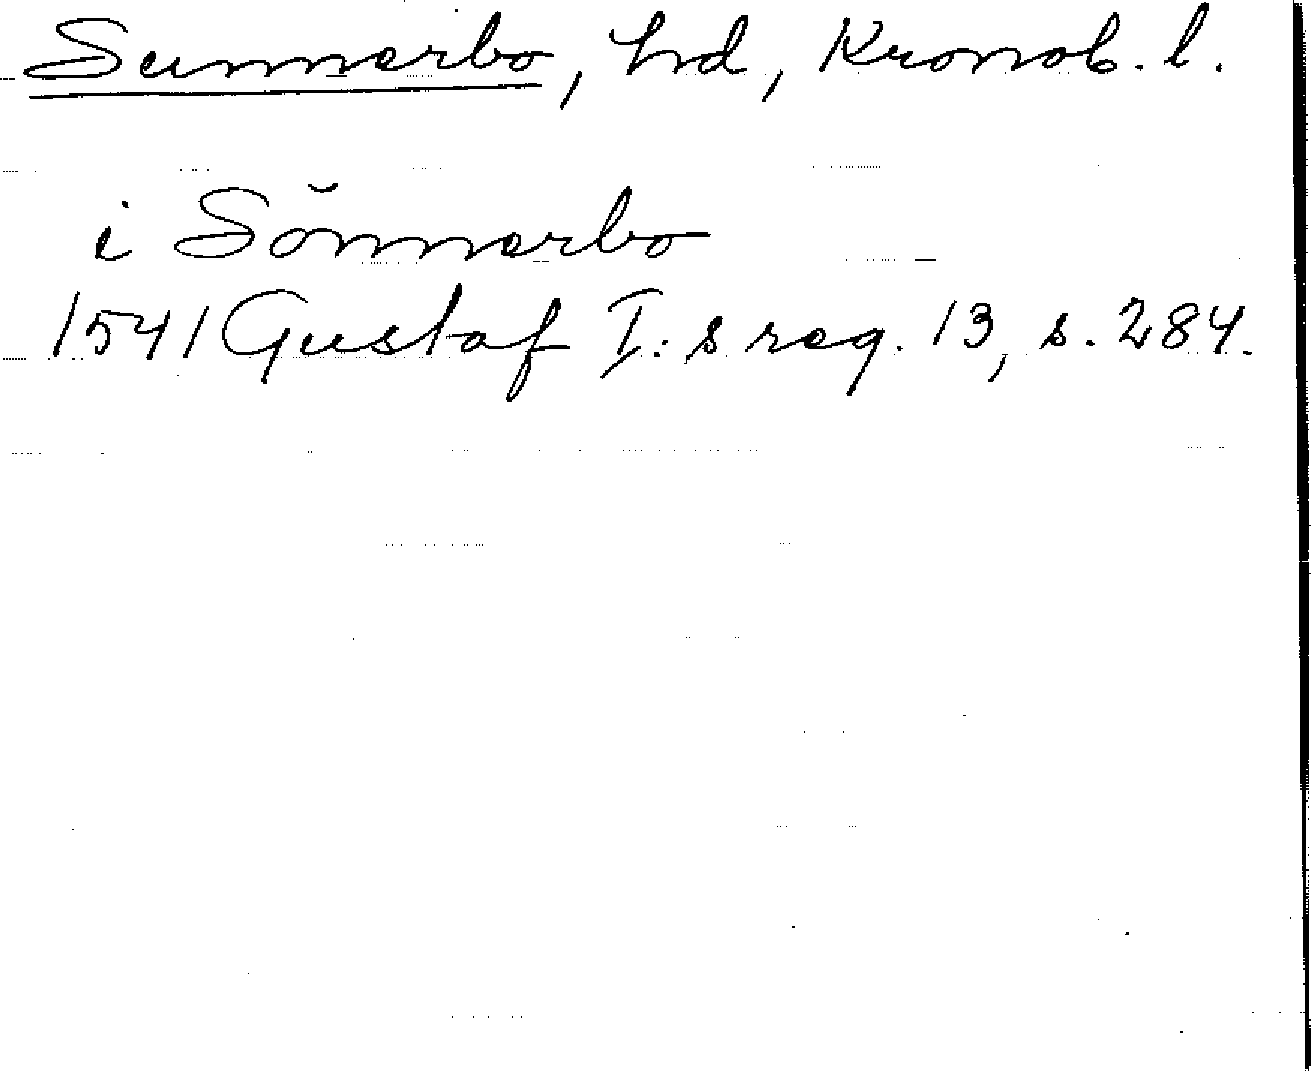 Sunnerbo, hd, Kronob. l.
i Sŏnnerbo
1541 Gustaf I:s reg. 13, s. 284.